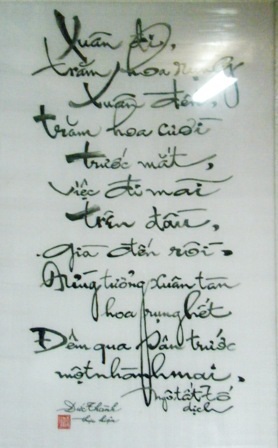 Xuân đi,
trăm hoa rụng
Xuân đến,
trăm hoa cười
trước mắt,
việc đi mãi
trên đầu,
già đến rồi.
Đừng tưởng xuân tàn
hoa rụng hết
Đêm qua sân trước
một nhành mai.
Ngô Tất Tố
dịch
Đức Thành